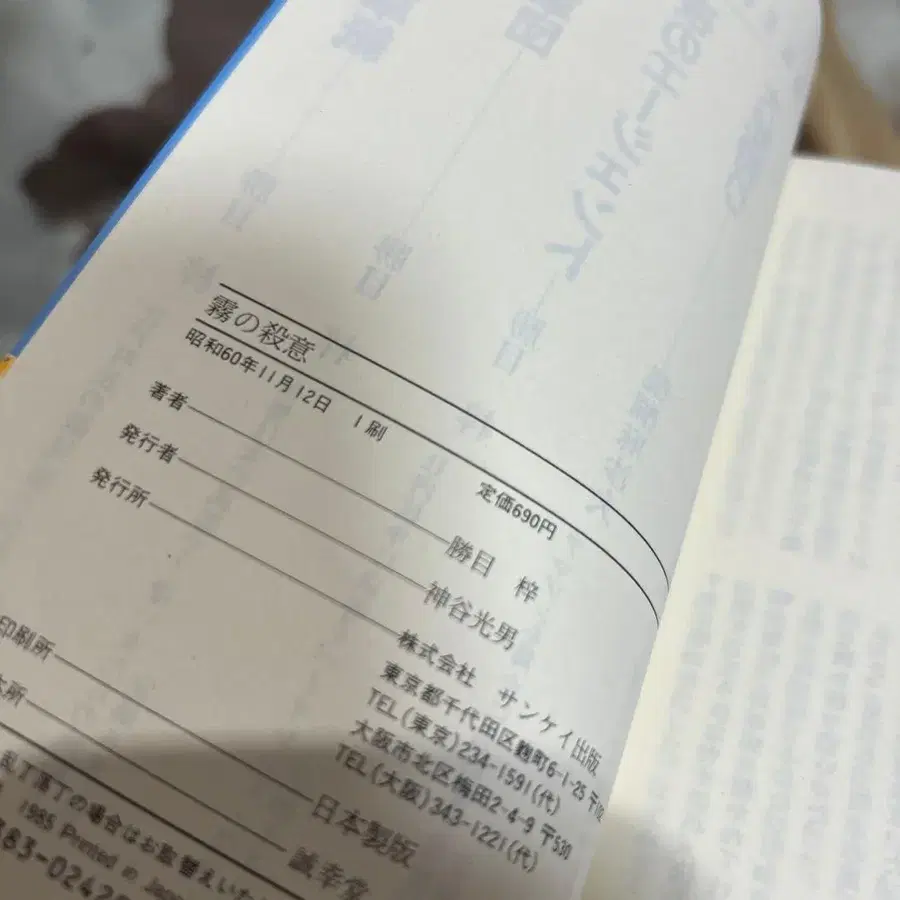 霧の殺意
昭和60年11月12日 1刷
定価690円
著者 勝目 梓
発行者 神谷光男
発行所 株式会社 サンケイ出版
東京都千代田区麹町6-1-25 〒102
TEL(東京)234-1591(代)
大阪市北区梅田2-4-9 〒530
TEL(大阪)343-1221(代)
印刷所 日本製版
本所 誠幸堂
乱丁落丁の場合はお取替えいた
1985 Printed in Japan
383-0242